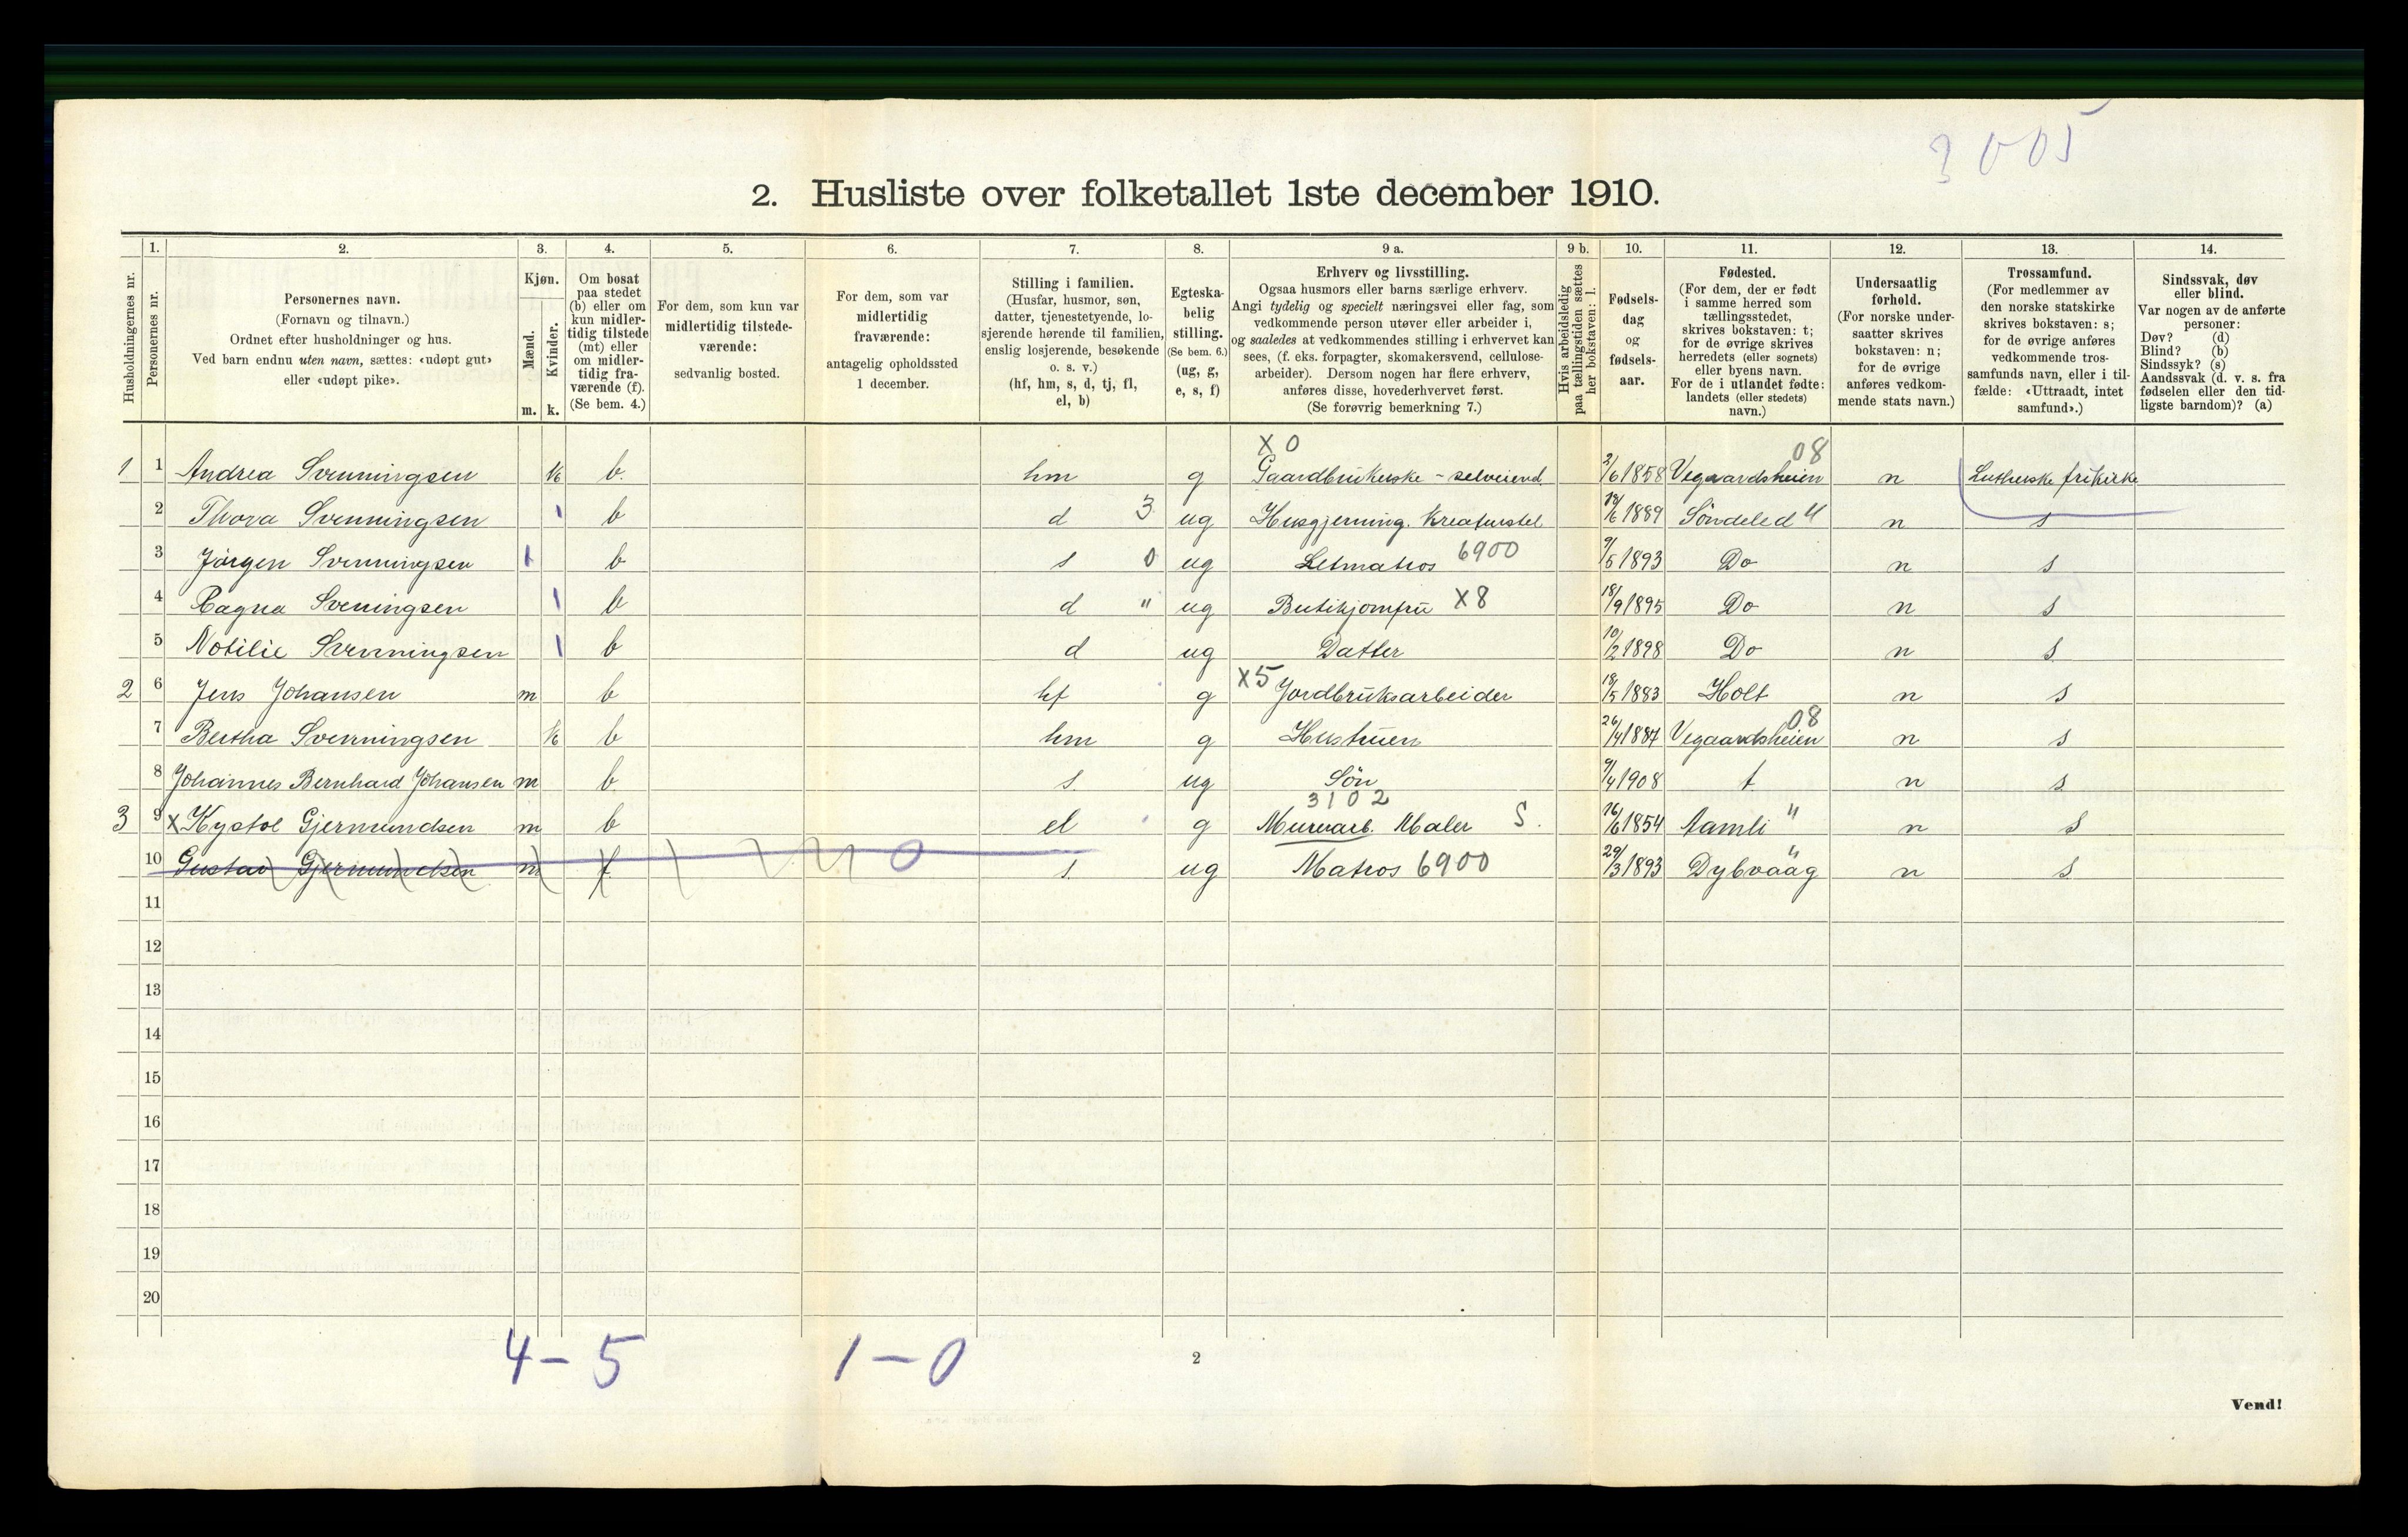 3005
2. Husliste over folketallet 1ste december 1910.
Husholdningernes nr.
1. Personernes nr.
2. Personernes navn. (Fornavn og tilnavn.) Ordnet efter husholdninger og hus. Ved barn endnu uten navn, sættes: «udøpt gut» eller «udøpt pike».
3. Kjøn. Mænd. m. Kvinder. k.
4. Om bosat paa stedet (b) eller om kun midlertidig tilstede (mt) eller om midlertidig fraværende (f). (Se bem. 4.)
5. For dem, som kun var midlertidig tilstedeværende: sedvanlig bosted.
6. For dem, som var midlertidig fraværende: antagelig opholdssted 1 december.
7. Stilling i familien. (Husfar, husmor, søn, datter, tjenestetyende, losjerende hørende til familien, enslig losjerende, besøkende o. s. v.) (hf, hm, s, d, tj, fl, el, b)
8. Egteskabelig stilling. (Se bem. 6.) (ug, g, e, s, f)
9 a. Erhverv og livsstilling. Ogsaa husmors eller barns særlige erhverv. Angi tydelig og specielt næringsvei eller fag, som vedkommende person utøver eller arbeider i, og saaledes at vedkommendes stilling i erhvervet kan sees, (f. eks. forpagter, skomakersvend, cellulosearbeider). Dersom nogen har flere erhverv, anføres disse, hovederhvervet først. (Se forøvrig bemerkning 7.)
9 b. Hvis arbeidsledig paa tællingstiden sættes her bokstaven: l.
10. Fødselsdag og fødselsaar.
11. Fødested. (For dem, der er født i samme herred som tællingsstedet, skrives bokstaven: t; for de øvrige skrives herredets (eller sognets) eller byens navn. For de i utlandet fødte: landets (eller stedets) navn.)
12. Undersaatlig forhold. (For norske undersaatter skrives bokstaven: n; for de øvrige anføres vedkommende stats navn.)
13. Trossamfund. (For medlemmer av den norske statskirke skrives bokstaven: s; for de øvrige anføres vedkommende trossamfunds navn, eller i tilfælde: «Uttraadt, intet samfund».)
14. Sindssvak, døv eller blind. Var nogen av de anførte personer: Døv? (d) Blind? (b) Sindssyk? (s) Aandssvak (d. v. s. fra fødselen eller den tidligste barndom)? (a)
X 0 08
1 1 Andrea Svenningsen k b. hm g Gaardbrukerske - selveiend. 2/6 1858 Vegaardsheien n Lutherske frikirke
2 Thora Svenningsen 1 b d 3 ug Husgjerning. Kreaturstel 12/6 1889 Söndeled " n s
3 Jörgen Svenningsen 1 b s 0 ug Letmatros 6900 9/5 1893 Do n s
4 Ragna Svenningsen 1 b d " ug Butikjomfru X8 18/9 1895 Do n s
5 Notilie Svenningsen 1 b d ug Datter 10/2 1898 Do n s
2 6 Jens Johansen m b hf g X5 Jordbruksarbeider 18/5 1883 Holt n s
7 Bertha Svenningsen k b hm g Hustruen 26/4 1887 Vegaardsheien 08 n s
8 Johannes Bernhard Johansen m b s ug Sön 9/4 1908 t n s
3102
3 9 X Kystol Gjermundsen m b el g Murarb. Maler S. 16/6 1854 Aamli " n s
10 Gustav Gjermundsen m f 0 s ug Matros 6900 29/3 1893 Dybvaag " n s
11
12
13
14
15
16
17
18
19
20
4 - 5 1 - 0
2
Vend!